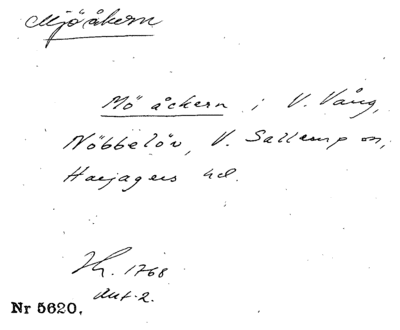 Mjöåkern
Mö åckern i V. Vång,
Nöbbelöv, V. Sallerup sn,
Harjagers hd.
Zh. 1768
Akt. 2.
Nr 5620.